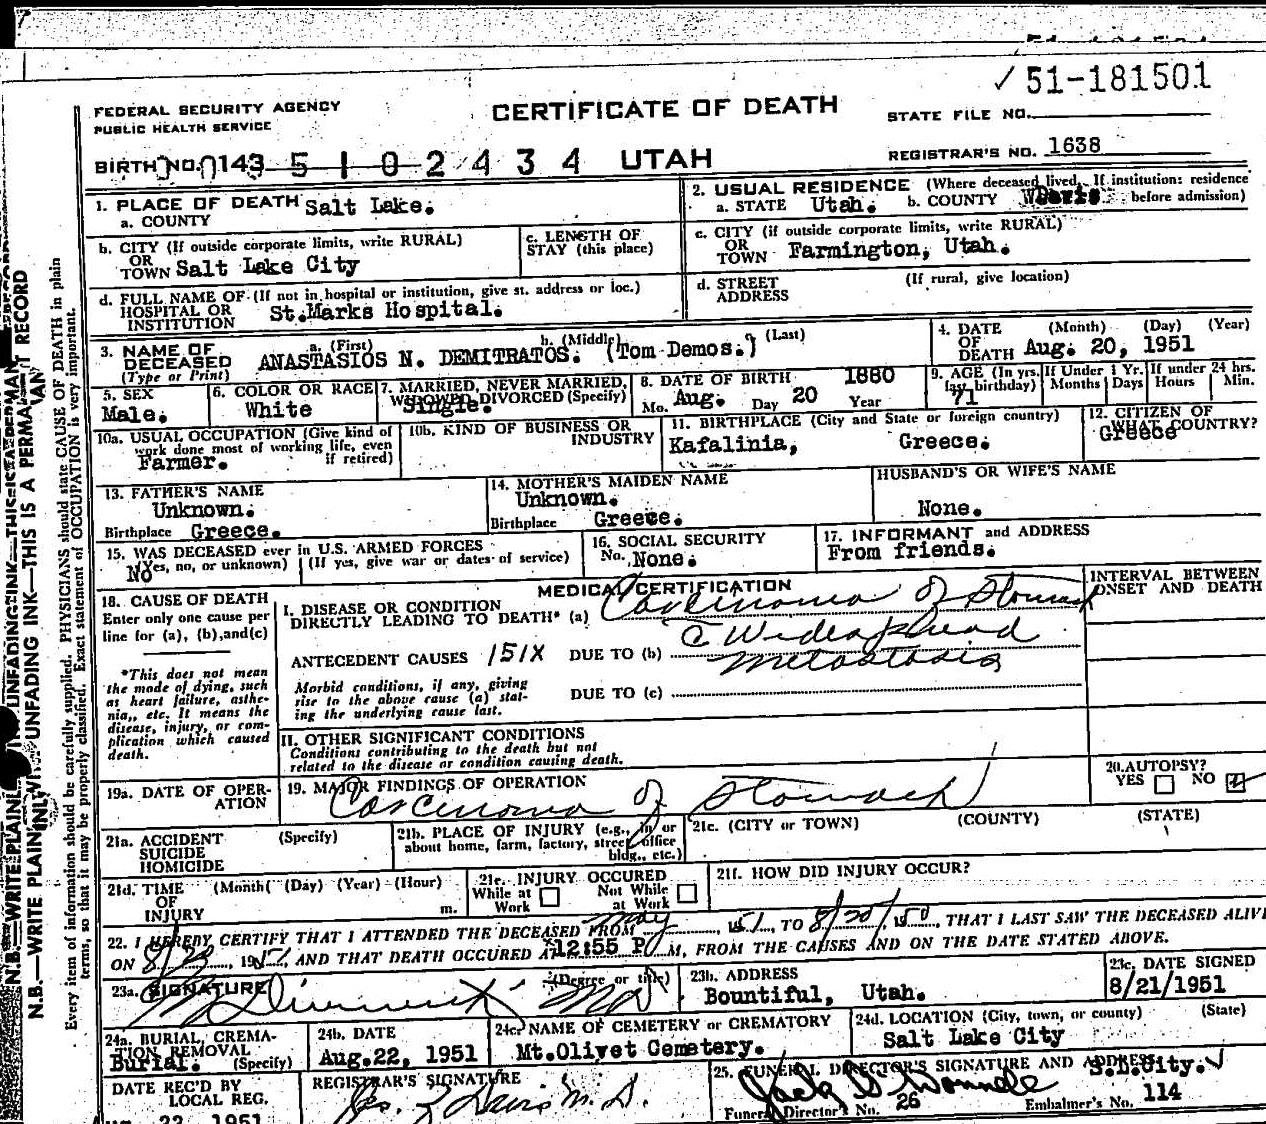 51-181501
FEDERAL SECURITY AGENCY
PUBLIC HEALTH SERVICE
CERTIFICATE OF DEATH
STATE FILE NO.
BIRTH NO. 143 5102434 UTAH
REGISTRAR'S NO. 1638
1. PLACE OF DEATH Salt Lake.
a. COUNTY
2. USUAL RESIDENCE (Where deceased lived. If institution: residence before admission)
a. STATE Utah. b. COUNTY Davis
b. CITY (If outside corporate limits, write RURAL)
OR
TOWN Salt Lake City
c. LENGTH OF
STAY (this place)
c. CITY (if outside corporate limits, write RURAL)
OR
TOWN Farmington, Utah.
d. FULL NAME OF (If not in hospital or institution, give st. address or loc.)
HOSPITAL OR
INSTITUTION St.Marks Hospital.
d. STREET
ADDRESS (If rural, give location)
3. NAME OF
DECEASED
(Type or Print)
a. (First) b. (Middle) (Last)
ANASTASIOS N. DEMITRATOS. (Tom Demos.)
4. DATE
OF
DEATH
(Month) (Day) (Year)
Aug. 20, 1951
5. SEX
Male.
6. COLOR OR RACE
White
7. MARRIED, NEVER MARRIED,
WIDOWED DIVORCED (Specify)
Single.
8. DATE OF BIRTH 1880
Mo. Aug. Day 20 Year
9. AGE (In yrs.
last birthday)
71
If Under 1 Yr.
Months Days
If under 24 hrs.
Hours Min.
10a. USUAL OCCUPATION (Give kind of
work done most of working life, even
if retired)
Farmer.
10b. KIND OF BUSINESS OR
INDUSTRY
11. BIRTHPLACE (City and State or foreign country)
Kafalinia, Greece.
12. CITIZEN OF
WHAT COUNTRY?
Greece
13. FATHER'S NAME
Unknown.
Birthplace Greece.
14. MOTHER'S MAIDEN NAME
Unknown.
Birthplace Greece.
HUSBAND'S OR WIFE'S NAME
None.
15. WAS DECEASED ever in U.S. ARMED FORCES
(Yes, no, or unknown) (If yes, give war or dates of service)
No
16. SOCIAL SECURITY
No. None.
17. INFORMANT and ADDRESS
From friends.
MEDICAL CERTIFICATION
INTERVAL BETWEEN
ONSET AND DEATH
18. CAUSE OF DEATH
Enter only one cause per
line for (a), (b),and(c)
*This does not mean
the mode of dying, such
as heart failure, asthe-
nia,, etc. It means the
disease, injury, or com-
plication which caused
death.
I. DISEASE OR CONDITION
DIRECTLY LEADING TO DEATH* (a) Carcinoma of Stomach
c Widespread
ANTECEDENT CAUSES 151X DUE TO (b) metastasis
Morbid conditions, if any, giving
rise to the above cause (a) stat-
ing the underlying cause last.
DUE TO (c)
II. OTHER SIGNIFICANT CONDITIONS
Conditions contributing to the death but not
related to the disease or condition causing death.
19a. DATE OF OPER-
ATION
19. MAJOR FINDINGS OF OPERATION
Carcinoma of Stomach
20. AUTOPSY?
YES NO
21a. ACCIDENT
SUICIDE
HOMICIDE
(Specify)
21b. PLACE OF INJURY (e.g., in or
about home, farm, factory, street, office
bldg., etc.)
21c. (CITY or TOWN) (COUNTY) (STATE)
21d. TIME
OF
INJURY
(Month) (Day) (Year) (Hour)
m.
21e. INJURY OCCURED
While at
Work
Not While
at Work
21f. HOW DID INJURY OCCUR?
22. I HEREBY CERTIFY THAT I ATTENDED THE DECEASED FROM May, 1951, TO 8/20/, 1950, THAT I LAST SAW THE DECEASED ALIVE
ON 8/20, 1951, AND THAT DEATH OCCURED AT 12:55 P M, FROM THE CAUSES AND ON THE DATE STATED ABOVE.
23a. SIGNATURE (Degree or title)
MD
23b. ADDRESS
Bountiful, Utah.
23c. DATE SIGNED
8/21/1951
24a. BURIAL, CREMA-
TION REMOVAL
(Specify)
Burial.
24b. DATE
Aug.22, 1951
24c. NAME OF CEMETERY or CREMATORY
Mt.Olivet Cemetery.
24d. LOCATION (City, town, or county) (State)
Salt Lake City
DATE REC'D BY
LOCAL REG.
REGISTRAR'S SIGNATURE
M.D.
25. FUNERAL DIRECTOR'S SIGNATURE AND ADDRESS
S.L.City.
Funeral Director's No. 26 Embalmer's No. 114
N.B.—WRITE PLAINLY WITH UNFADING INK—THIS IS A PERMANENT RECORD
Every item of information should be carefully supplied. PHYSICIANS should state CAUSE OF DEATH in plain
terms, so that it may be properly classified. Exact statement of OCCUPATION is very important.